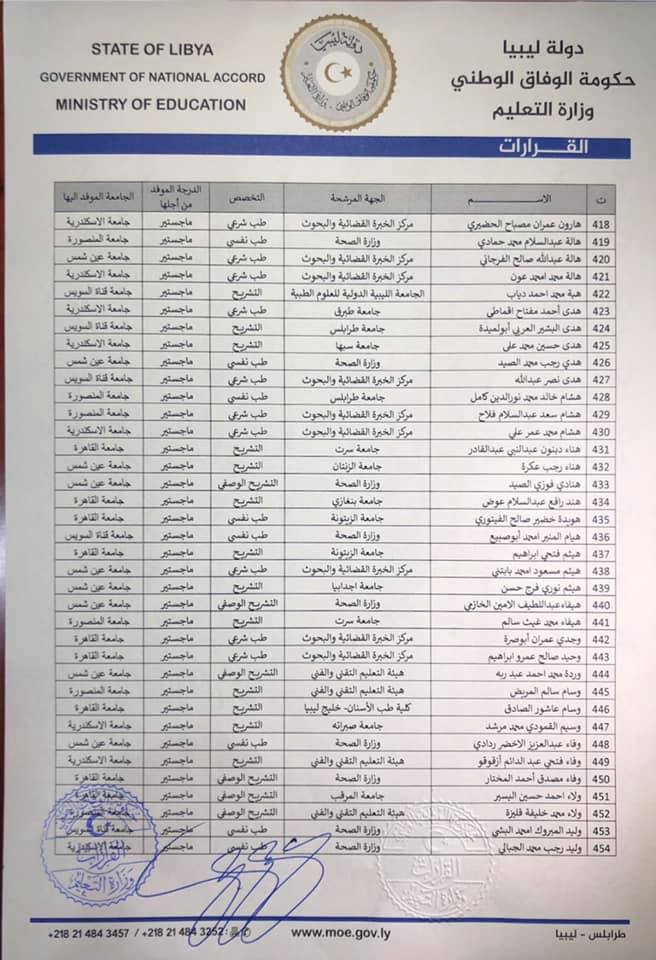 STATE OF LIBYA
GOVERNMENT OF NATIONAL ACCORD
MINISTRY OF EDUCATION
دولة ليبيا
حكومة الوفاق الوطني
وزارة التعليم
القـــرارات
ت الاســـم الجهة المرشحة التخصص الدرجة الموفد من أجلها الجامعة الموفد اليها
418 هارون عمران مصباح الحضيري مركز الخبرة القضائية والبحوث طب شرعي ماجستير جامعة الاسكندرية
419 هالة عبدالسلام محمد حمادي وزارة الصحة طب نفسي ماجستير جامعة المنصورة
420 هالة عبدالله صالح الفرجاني مركز الخبرة القضائية والبحوث طب شرعي ماجستير جامعة عين شمس
421 هالة محمد امحمد عون مركز الخبرة القضائية والبحوث طب شرعي ماجستير جامعة الاسكندرية
422 هبة محمد احمد دياب الجامعة الليبية الدولية للعلوم الطبية التشريح ماجستير جامعة قناة السويس
423 هدى أحمد مفتاح اقماطي جامعة طبرق طب شرعي ماجستير جامعة الاسكندرية
424 هدى البشير العربي أبولميدة جامعة طرابلس التشريح ماجستير جامعة قناة السويس
425 هدى حسين محمد على جامعة سبها التشريح ماجستير جامعة الاسكندرية
426 هدي رجب محمد الصيد وزارة الصحة طب نفسي ماجستير جامعة عين شمس
427 هدى نصر عبدالله مركز الخبرة القضائية والبحوث طب شرعي ماجستير جامعة قناة السويس
428 هشام خالد محمد نورالدين كامل جامعة طرابلس طب نفسي ماجستير جامعة المنصورة
429 هشام سعد عبدالسلام فلاح مركز الخبرة القضائية والبحوث طب شرعي ماجستير جامعة المنصورة
430 هشام محمد عمر علي مركز الخبرة القضائية والبحوث طب شرعي ماجستير جامعة الاسكندرية
431 هناء دبنون عبدالنبي عبدالقادر جامعة سرت التشريح ماجستير جامعة القاهرة
432 هناء رجب عكرة جامعة الزنتان التشريح ماجستير جامعة عين شمس
433 هنادي فوزي الصيد وزارة الصحة التشريح الوصفي ماجستير جامعة عين شمس
434 هند رافع عبدالسلام عوض جامعة بنغازي التشريح ماجستير جامعة القاهرة
435 هويدة خضير صالح الفيتوري جامعة الزيتونة طب نفسي ماجستير جامعة القاهرة
436 هيام المنير امحمد أبوصبيع وزارة الصحة طب نفسي ماجستير جامعة قناة السويس
437 هيثم فتحي ابراهيم جامعة الزيتونة التشريح ماجستير جامعة القاهرة
438 هيثم مسعود امحمد بابتني مركز الخبرة القضائية والبحوث طب شرعي ماجستير جامعة عين شمس
439 هيثم نوري فرج حسن جامعة اجدابيا التشريح ماجستير جامعة عين شمس
440 هيفاءعبداللطيف الامين الخازمي وزارة الصحة التشريح الوصفي ماجستير جامعة عين شمس
441 هيفاء محمد غيث سالم جامعة سرت التشريح ماجستير جامعة المنصورة
442 وجدي عمران أبوصرة مركز الخبرة القضائية والبحوث طب شرعي ماجستير جامعة القاهرة
443 وحيد صالح عمرو ابراهيم مركز الخبرة القضائية والبحوث طب شرعي ماجستير جامعة القاهرة
444 وردة محمد احمد عبد ربه هيئة التعليم التقني والفني التشريح الوصفي ماجستير جامعة القاهرة
445 وسام سالم المريض هيئة التعليم التقني والفني التشريح ماجستير جامعة المنصورة
446 وسام عاشور الصادق كلية طب الأسنان- خليج ليبيا التشريح ماجستير جامعة القاهرة
447 وسيم القمودي محمد مرشد جامعة صبراته التشريح ماجستير جامعة الاسكندرية
448 وفاء عبدالعزيز الاخضر ردادي وزارة الصحة طب نفسي ماجستير جامعة عين شمس
449 وفاء فتحي عبد الدائم أزقوقو هيئة التعليم التقني والفني التشريح ماجستير جامعة الاسكندرية
450 وفاء مصدق أحمد المختار وزارة الصحة التشريح الوصفي ماجستير جامعة القاهرة
451 ولاء احمد حسين اليسير جامعة المرقب التشريح ماجستير جامعة القاهرة
452 ولاء محمد خليفة قليزة هيئة التعليم التقني والفني التشريح الوصفي ماجستير جامعة المنصورة
453 وليد المبروك امحمد البشي وزارة الصحة طب نفسي ماجستير جامعة قناة السويس
454 وليد رجب محمد الجبالي وزارة الصحة طب نفسي ماجستير جامعة الاسكندرية
القرارات
وزارة التعليم
+218 21 484 3457 / +218 21 484 3252
www.moe.gov.ly
طرابلس - ليبيا